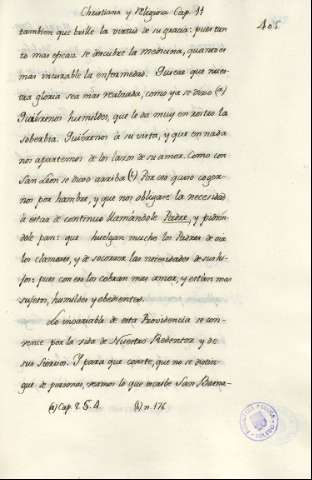 Christiana y Religiosa Cap. 11
405
tambien que brille la virtud de su gracia: pues tan
to mas eficaz se descubre la medicina, quanto es
mas incurable la enfermedad. Quiere que nues-
tra gloria sea mas realzada, como ya se dixo (a)
Quierenos humildes, que le da muy en rostro la
soberbia. Quierenos à su vista, y que en nada
nos apartemos de los lazos de su amor. Como con
San Leon se dixo arriba (b). Por eso quiso coger-
nos por hambre, y que nos obligase la necesidad
à estar de continuo llamandole Padre, y pidien-
dole pan: que huelgan mucho los Padres de oir
los clamores, y de socorrer las necesidades de sus hi-
jos: pues con eso les cobran mas amor, y estàn mas
sujetos, humildes y obedientes.
Lo invariable de esta Providencia se con-
vence por la vida de Nuestro Redentor y de
sus Siervos. Y para que conste, que no se distin-
gue de personas, veamos lo que escribe San Buena-
(a) Cap. 2. §. 4. (b) n. 176